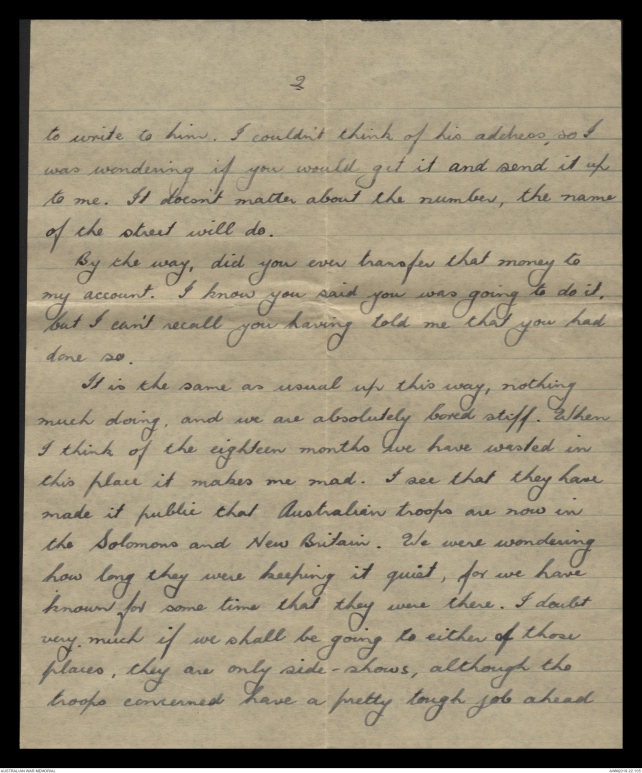 2
to write to him. I couldn't think of his address, so I
was wondering if you would get it and send it up
to me. It doesn't matter about the number, the name
of the street will do.
By the way, did you ever transfer that money to
my account. I know you said you was going to do it,
but I can't recall you having told me that you had
done so.
It is the same as usual up this way, nothing
much doing, and we are absolutely bored stiff. When
I think of the eighteen months we have wasted in
this place it makes me mad. I see that they have
made it public that Australian troops are now in
the Solomons and New Britain. We were wondering
how long they were keeping it quiet, for we have
known for some time that they were there. I doubt
very much if we shall be going to either of those
places, they are only side-shows, although the
troops concerned have a pretty tough job ahead
AUSTRALIAN WAR MEMORIAL